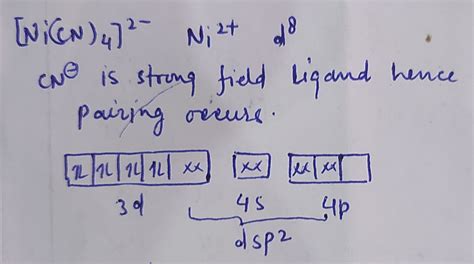 [Ni(CN)4]2- Ni2+ d8
CN⊖ is strong field ligand hence
pairing occurs.
1L 1L 1L 1L xx xx xx xx
3d 4s 4p
dsp2